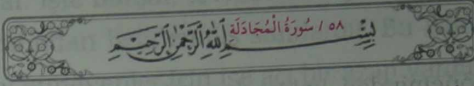 ٥٨ / سُورَةُ الْمُجَادَلَةِ
بِسْمِ اللّٰهِ الرَّحْمٰنِ الرَّحِيْمِ